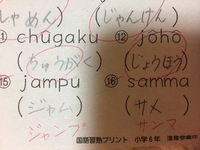 (じゃめん) (じゃんけん)
⑪ chūgaku ⑫ jōhō
(ちゅうがく) (じょうほう)
⑮ jampu ⑯ samma
(ジャム) (サメ)
ジャンプ サンマ
国語習熟プリント 小学6年